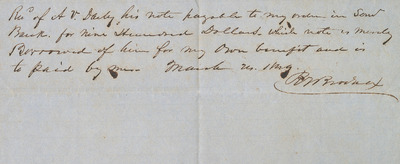 Rec' of A V. his note payable to my order in
Bank. for Nine Hundred Dollars which note is merely
Borrowed of him for my Own benefit and is
to paid by me March 24.